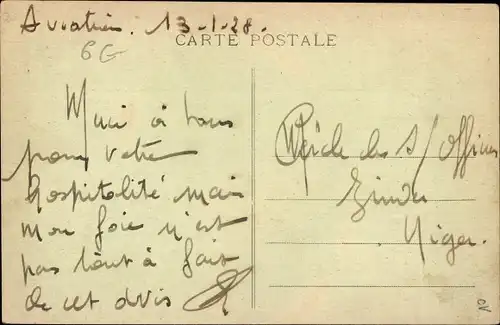 Aviation. 13-1-28.
CARTE POSTALE
6G
Merci à tous
pour votre
hospitalité mais
mon foie n'est
pas tout à fait
de cet avis
Cercle des s/Officiers
Zinder
Niger